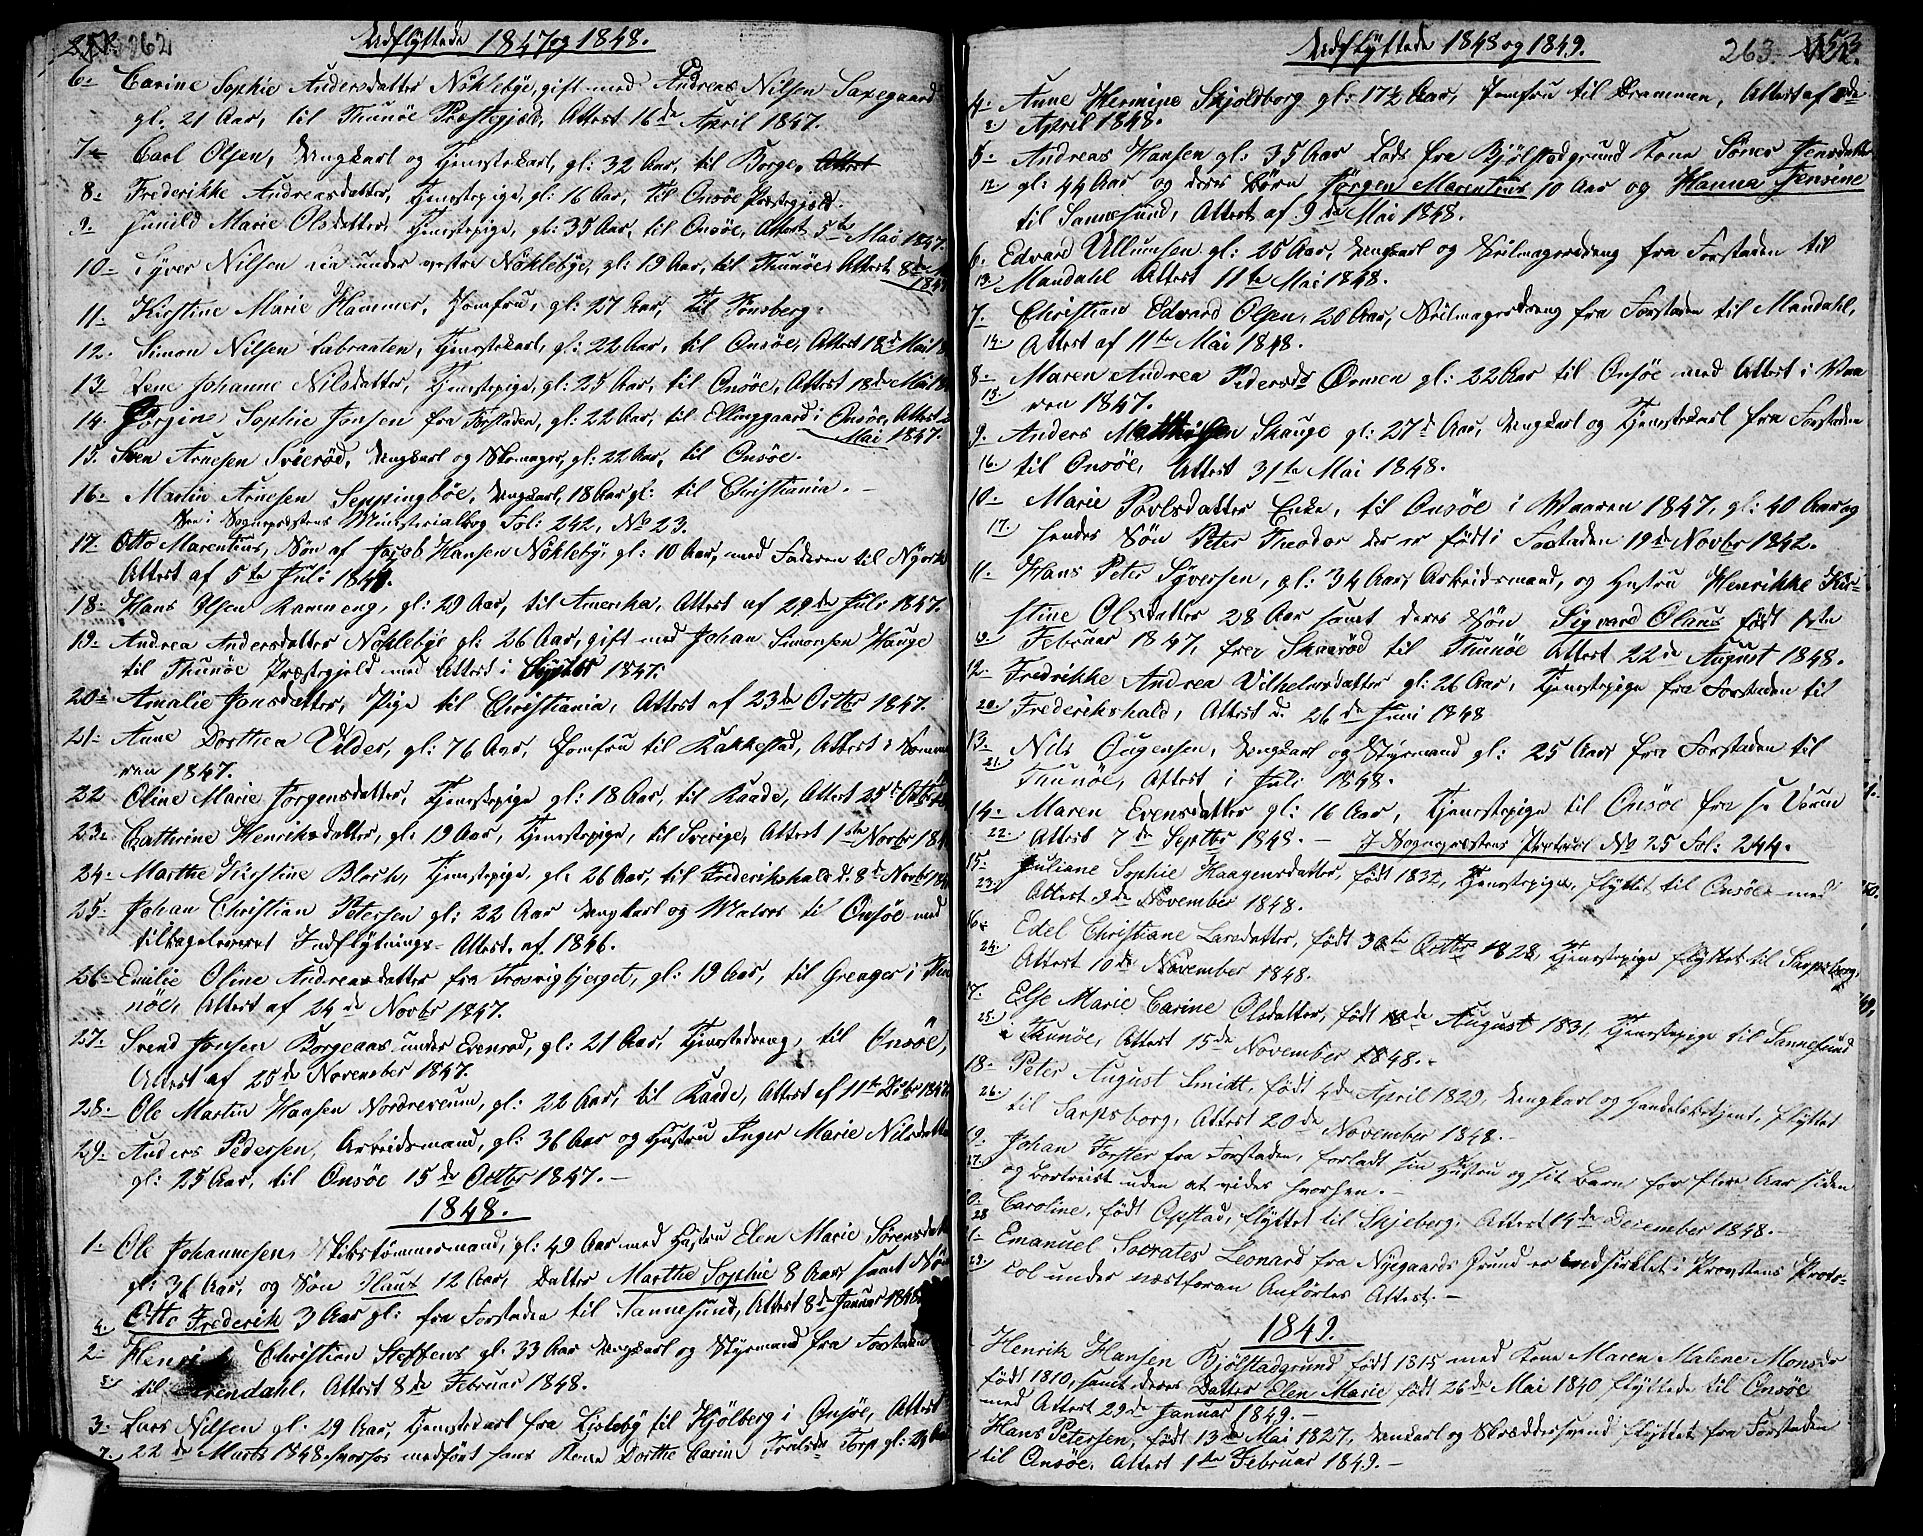 262
Udflyttede 1847 og 1848.
6. Carine Sophie Andersdatter Nöklebye, gift med Andreas Nilsen Saxegaard
gl: 21 Aar, til Thunöe Præstegjeld, Attest 16de April 1847.
7. Carl Olsen, Ungkarl og Tjenestekarl, gl: 32 Aar, til Borge, Attest
8. Frederikke Andreasdatter, Tjenestepige, gl: 16 Aar, til Onsöe Præstegjeld.
9. Gunild Marie Olsdatter, Tjenestepige, gl: 35 Aar, til Onsöe, Attest 5te Mai 1847.
10. Syver Nilsen Lie under vestre Nöklebye, gl: 19 Aar, til Thunöe, Attest 8de
1847
11. Kirstine Marie Hammer, Jomfru, gl: 27 Aar, til Tönsberg.
12. Simon Nilsen Labraaten, Tjenestekarl, gl: 22 Aar, til Onsöe, Attest 18de Mai 18
13. Lene Johanne Nilsdatter, Tjenestepige, gl: 25 Aar, til Onsöe, Attest 18de Mai 18
14. Jörgine Sophie Jonsen fra Forstaden, gl: 22 Aar, til Ellinggaard i Onsöe, Attest
Mai 1847.
15. Sven Arnesen Svieröd, Ungkarl og Skomager, gl: 22 Aar, til Onsöe.
16. Martin Arnesen Seppingböe, Ungkarl, 18 Aar gl: til Christiania.
See i Sognepræstens Ministerialbog Fol: 242, No 23.
17. Otto Marentius, Sön af Jacob Hansen Nökleby, gl: 10 Aar, med Faderen til Nyork
Attest af 5te Juli 1847.
18. Hans Olsen Ramneng, gl: 29 Aar, til Amerika, Attest af 29de Juli 1847.
19. Andrea Andersdatter Nöklebye gl: 26 Aar, gift med Johan Simonsen Hauge
til Thunöe Præstegjeld med Attest i Septbr 1847.
20. Amalie Jonsdatter, Pige til Christiania, Attest af 23de Octbr 1847.
21. Anne Dorthea Vilder, gl: 76 Aar, Jomfru til Rakkestad, Attest i Somme
ren 1847.
22 Oline Marie Jörgensdatter, Tjenestepige gl: 18 Aar, til Raade, Attest 25de Octbr
23. Cathrine Henriksdatter, gl: 19 Aar, Tjenestepige, til Sverige, Attest 1ste Novbr 184
24. Marthe Kirstine Bloch, Tjenestepige, gl: 26 Aar, til Frederikshald d. 8de Novbr 184
25. Johan Christian Petersen gl: 22 Aar Ungkarl og Matros til Onsöe med
tilbageleveret Indflytnings-Attest af 1846.
26. Emilie Oline Andreasdatter fra Trosvigbjerget, gl: 19 Aar, til Grenager i Thu
nöe, Attest af 24de Novbr 1847.
27. Svend Jonsen Borgeaas under Evensrød, gl: 21 Aar, Tjenestedreng, til Onsöe,
Attest af 25de November 1847.
28. Ole Martin Hansen Nordreveum, gl: 22 Aar, til Raade, Attest af 11te Dcbr 1847
29. Anders Pedersen, Arbeidsmand, gl: 36 Aar og Hustru Inger Marie Nilsdatter
gl: 25 Aar, til Onsöe 15de Octbr 1847.
1848.
1. Ole Johannesen, Skibstömmermand, gl: 49 Aar med Hustru Elen Marie Sörensdat
gl: 36 Aar, og Sön Hans 12 Aar, Datter Marthe Sophie 8 Aar samt Sön
4. Otto Frederik 3 Aar gl: fra Forstaden til Sannesund, Attest 8de Januar 1848
2. Henrik Christian Steffens gl: 33 Aar Ungkarl og Styrmand fra Forstaden
5. til Arendahl, Attest 8de Februar 1848.
3. Lars Nilsen gl: 29 Aar, Tjenestekarl fra Lisleby til Kjölberg i Onsöe, Attest
7. 22de Marts 1848, hvorfos medfört hans Kone Dorthe Carine Torp gl: 29
Udflyttede 1848 og 1849.
263.
4. Anne Hermine Skjoldborg gl: 17½ Aar, Jomfru til Drammen, Attest af
8. April 1848.
5. Andreas Hansen gl: 35 Aar Lods fra Bjölstadgrund Kone Sönev Jensdatter
12 gl: 44 Aar og deres Börn Jörgen Marentius 10 Aar og Hanna Jensine
til Sannesund, Attest af 9de Mai 1848.
6. Edvard Ullumsen gl: 25 Aar, Ungkarl og Seilmagerdreng fra Forstaden til
13. Mandahl Attest 11te Mai 1848.
7. Christian Edvard Olsen, 20 Aar, Seilmagerdreng fra Forstaden til Mandahl,
14. Attest af 11te Mai 1848.
8. Maren Andrea Pedersdr Ormen gl: 22 Aar til Onsöe med Attest i Vaa
15. ren 1847.
9. Anders Matthisen Skauge gl: 27 Aar, Ungkarl og Tjenestekarl fra Forstaden
16. til Onsöe, Attest 31te Mai 1848.
10. Marie Povlsdatter Enke, til Onsöe i Vaaren 1847, gl: 40 Aar og
17. hendes Sön Peter Theodor der er født i Forstaden 19de Novbr 1842.
11. Hans Peter Syversen, gl: 34 Aar, Arbeidsmand, og Hustru Henrikke Kir-
stine Olsdatter 28 Aar samt deres Sön Sigvard Olaus född 1ste
19. Februar 1847, fra Skaaröd til Thunöe Attest 22de August 1848.
12. Fredrikke Andrea Vilhelmsdatter gl: 26 Aar, Tjenestepige fra Forstaden til
20. Frederikshald, Attest d. 26de Juni 1848
13. Nils Ougensen, Ungkarl og Styrmand gl: 25 Aar fra Forstaden til
21. Thunöe, Attest i Juli 1848.
14. Maren Evensdatter gl: 16 Aar, Tjenestepige til Onsöe fra
22. Attest 7de Septbr 1848. - I Sognepræstens Protocol No 25 Fol: 244.
15. Juliane Sophie Haagensdatter, född 1832, Tjenestepige, flyttet til Onsöe med
23. Attest 9de November 1848.
16. Edel Christiane Larsdatter, född 30te Octbr 1828, Tjenestepige flyttet til Sarpsborg,
24. Attest 10de November 1848.
17. Else Marie Carine Olsdatter, född 18de August 1831, Tjenestepige til Sannesund
25. i Thunöe, Attest 15de November 1848.
18. Peter August Smidt, född 4de April 1829, Ungkarl og Handelsbetjent, flyttet
26. til Sarpsborg, Attest 20de November 1848.
19. Johan Forster fra Forstaden, forladt sin Hustru og sit Barn for flere Aar siden
27. og bortreist uden at vides hvorhen.
20. Caroline, född Opstad, flyttet til Skjeberg, Attest 14de December 1848.
28
21. Emanuel Socrates Leonard fra Nyegaards Grund er indsirklet i Provstens Proto-
29. col under næstforan Anførtes Attest.
1849.
Henrik Hansen Bjölstadgrund född 1815 med Kone Maren Malene Monsdr
född 1810, samt deres Datter Elen Marie född 26de Mai 1840 flyttede til Onsöe
med Attest 29de Januar 1849.
Hans Petersen, född 13de Mai 1827, Ungkarl og Skræddersvend flyttet fra Forstaden
til Onsöe, Attest 1ste Februar 1849.